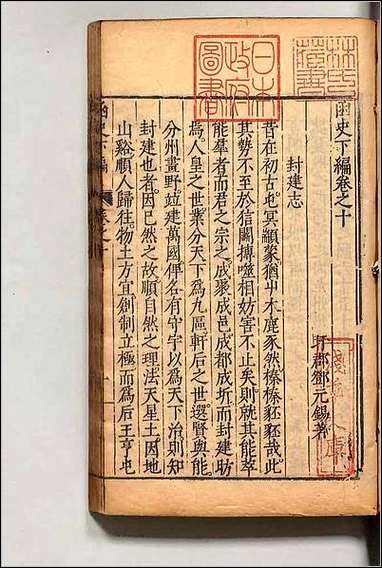 林氏藏書
日本政府圖書
淺草文庫
函史下編卷之十
盱郡鄧元錫著
封建志
昔在初古屯冥顓蒙猶屮木鹿豕然榛榛豾豾哉此
其勢不至於信鬭摶噬相妨害不止矣則就其能萃
能羣者而君之宗之成聚成邑成都成圻而封建昉
焉人皇之世業分天下爲九區軒后之世選賢與能
分州畫野竝建萬國俾名有守字以爲天下治則知
封建也者因已然之故順自然之理法天星土因地
山谿順人歸往物土方宜創制立極而爲后王亨屯
函史下編
卷之十
一